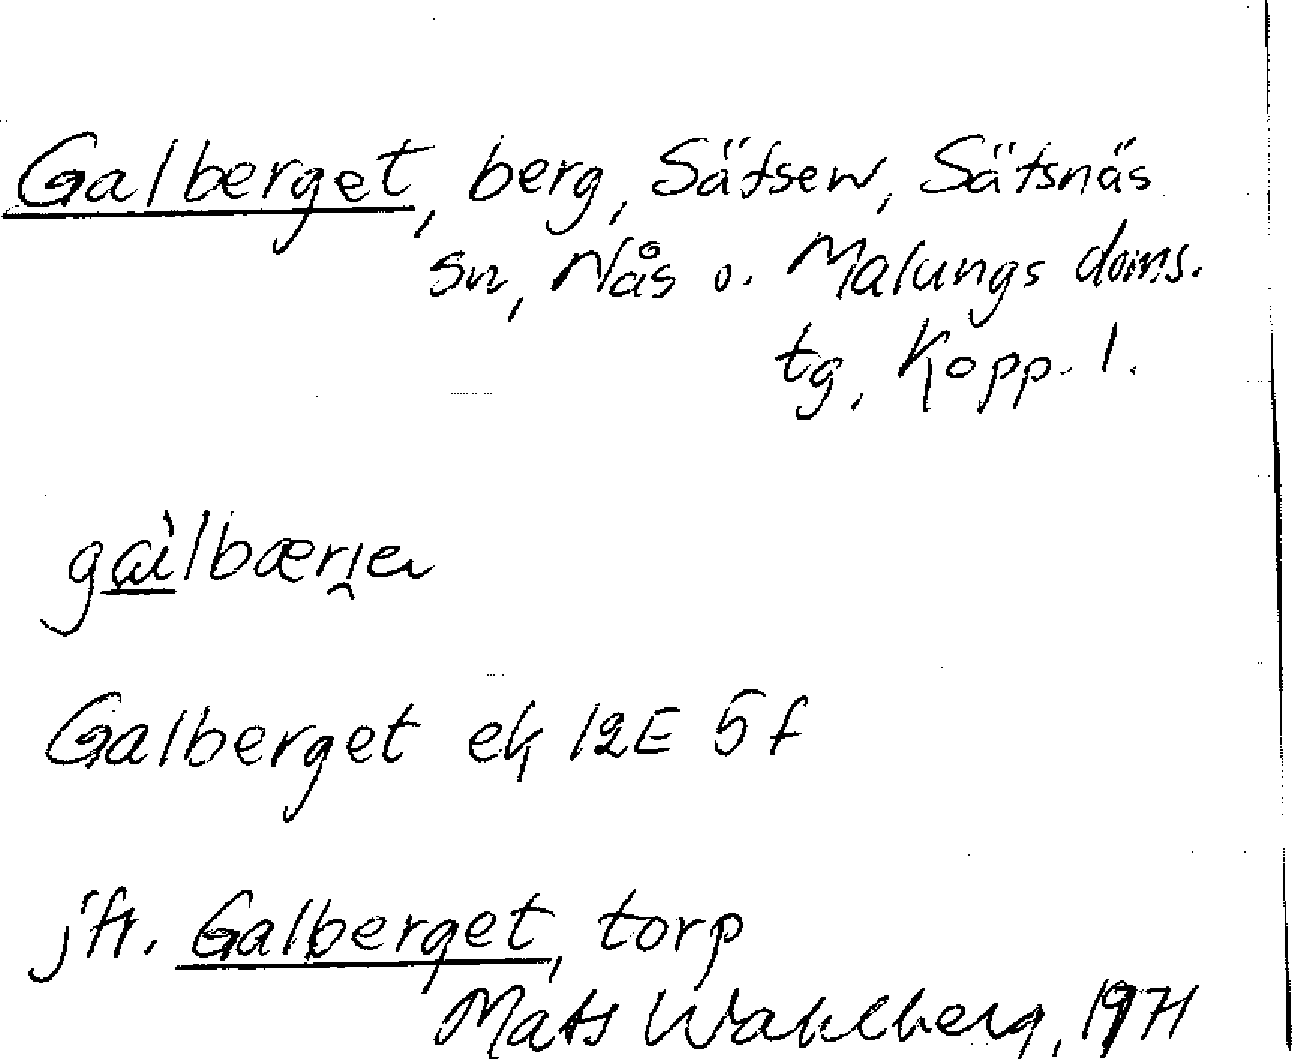 Galberget, berg, Sätsen, Sätsnäs
sn, Nås o. Malungs doms.
tg, Kopp. l.
Galberget ek 12E 5f
jfr. Galberget, torp
Mats Wahlberg, 1971